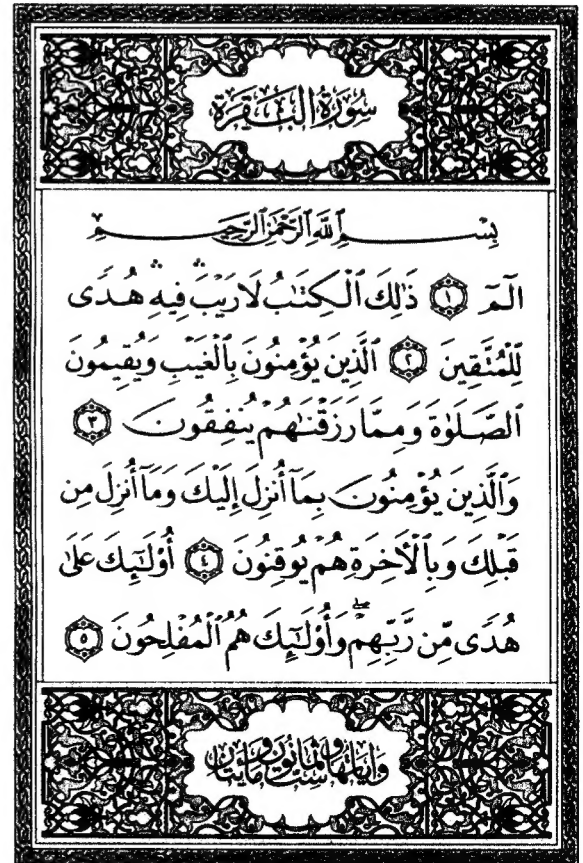 سُورَةُ البَقَرَةِ
بِسْمِ ٱللَّهِ ٱلرَّحْمَٰنِ ٱلرَّحِيمِ
الٓمٓ ۝١ ذَٰلِكَ ٱلْكِتَٰبُ لَا رَيْبَۛ فِيهِۛ هُدًى
لِّلْمُتَّقِينَ ۝٢ ٱلَّذِينَ يُؤْمِنُونَ بِٱلْغَيْبِ وَيُقِيمُونَ
ٱلصَّلَوٰةَ وَمِمَّا رَزَقْنَٰهُمْ يُنفِقُونَ ۝٣
وَٱلَّذِينَ يُؤْمِنُونَ بِمَآ أُنزِلَ إِلَيْكَ وَمَآ أُنزِلَ مِن
قَبْلِكَ وَبِٱلْأَخِرَةِ هُمْ يُوقِنُونَ ۝٤ أُوْلَٰٓئِكَ عَلَىٰ
هُدًى مِّن رَّبِّهِمْۖ وَأُوْلَٰٓئِكَ هُمُ ٱلْمُفْلِحُونَ ۝٥
وآياتها ست وثمانون ومايتان